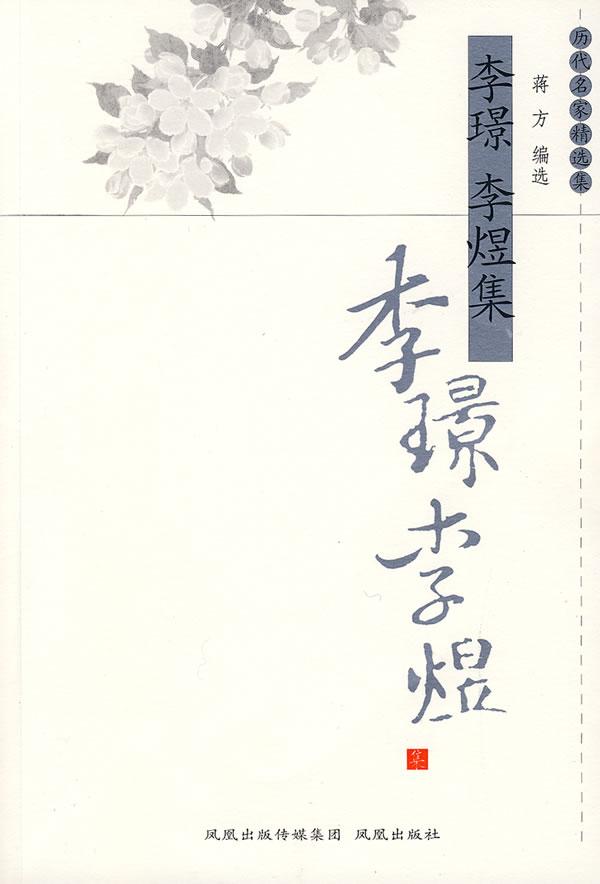 历代名家精选集
蒋方 编选
李璟 李煜集
李璟李煜
集
凤凰出版传媒集团 凤凰出版社